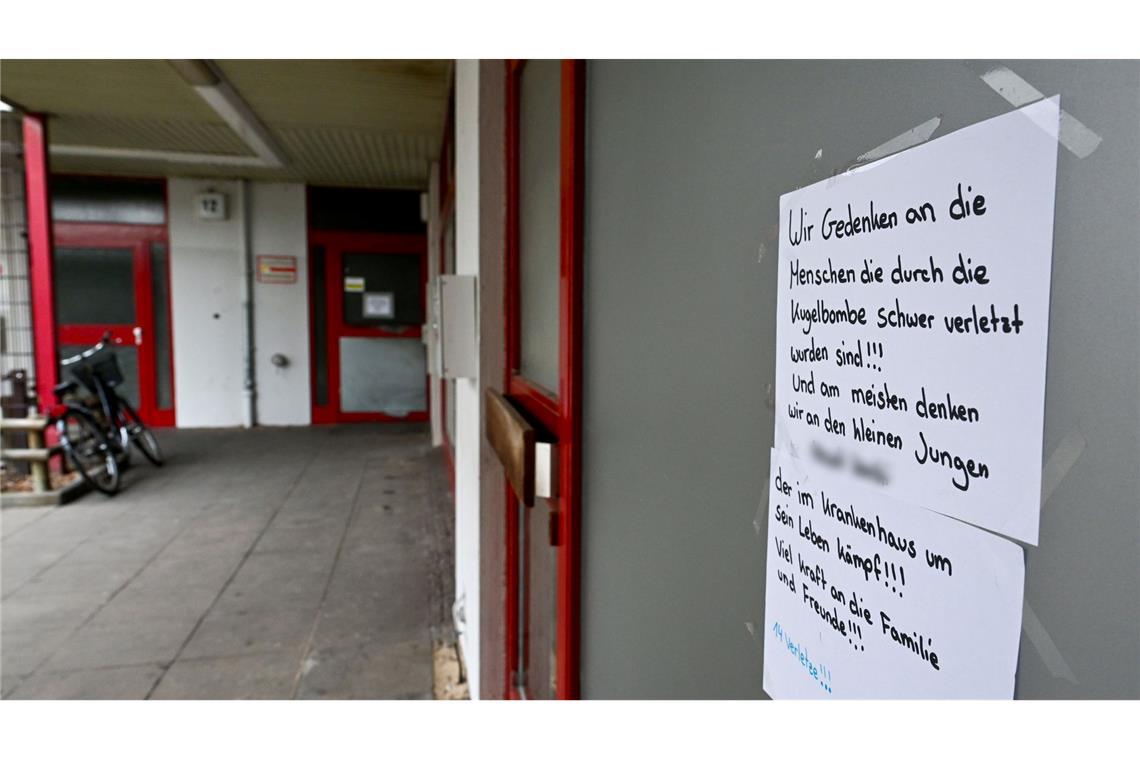 12
Wir Gedenken an die
Menschen die durch die
Kugelbombe schwer verletzt
wurden sind!!!
Und am meisten denken
wir an den kleinen Jungen
der im Krankenhaus um
sein Leben Kämpf!!!
Viel Kraft an die Familie
und Freunde!!!
14 Verletze!!!